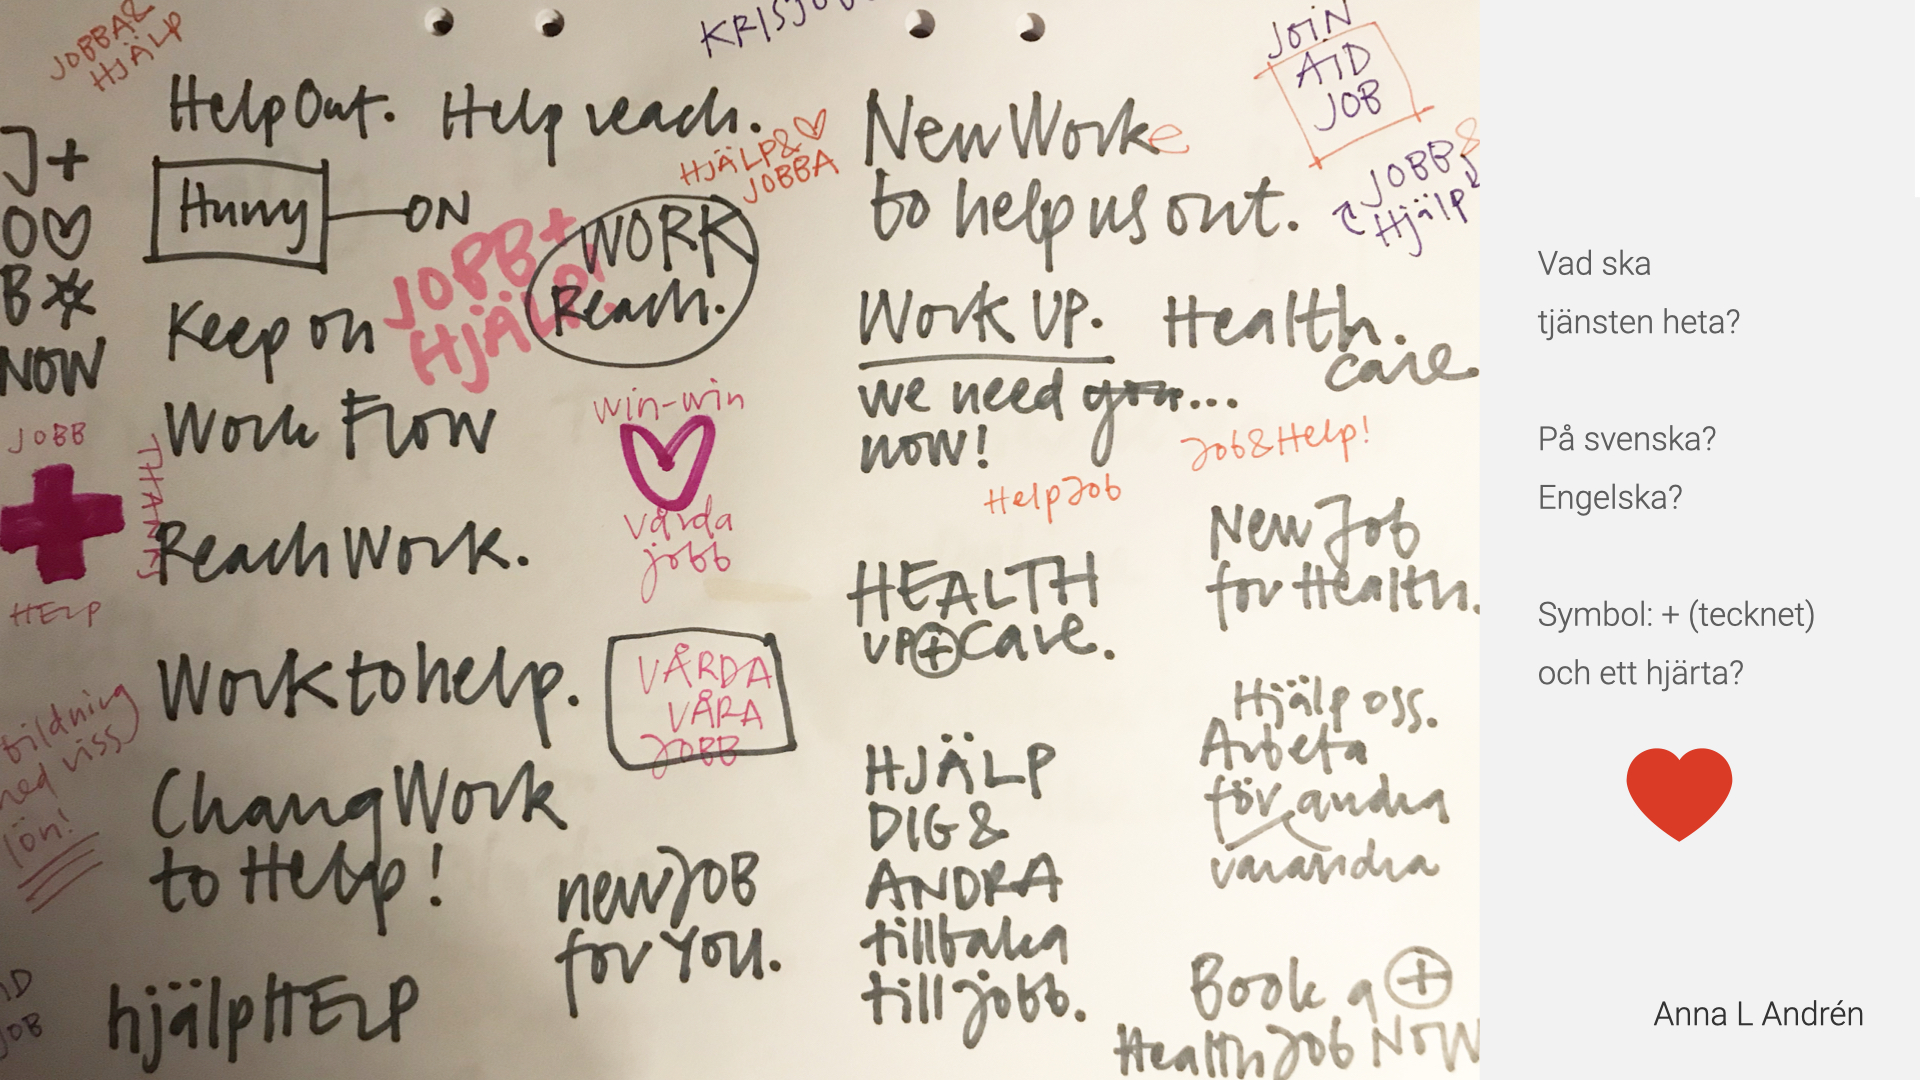 JOBBA &
HJÄLP
J+
O♡
B
NOW
JOBB
THANKS
HELP
bildning
med viss
lön!
JOB
Help Out. Help reach.
Hurry — ON
Keep on
Work Flow
Reach Work.
Work to help.
Chang Work
to Help!
hjälp HELP
JOBB+
HJÄLP!
WORK
Reach.
HJÄLP&♡
JOBBA
win-win
vårda
jobb
VÅRDA
VÅRA
JOBB
new JOB
for YOU.
New Worke
to help us out.
Work UP.
we need you...
now!
Health.
care
Job&Help!
Help Job
HEALTH
UP+care.
HJÄLP
DIG &
ANDRA
tillbaka
till jobb.
JOIN
AID
JOB
JOBB&
Hjälp
New Job
for Health.
Hjälp oss.
Arbeta
för andra
varandra
Book a +
Health Job NOW
Vad ska
tjänsten heta?
På svenska?
Engelska?
Symbol: + (tecknet)
och ett hjärta?
Anna L Andrén